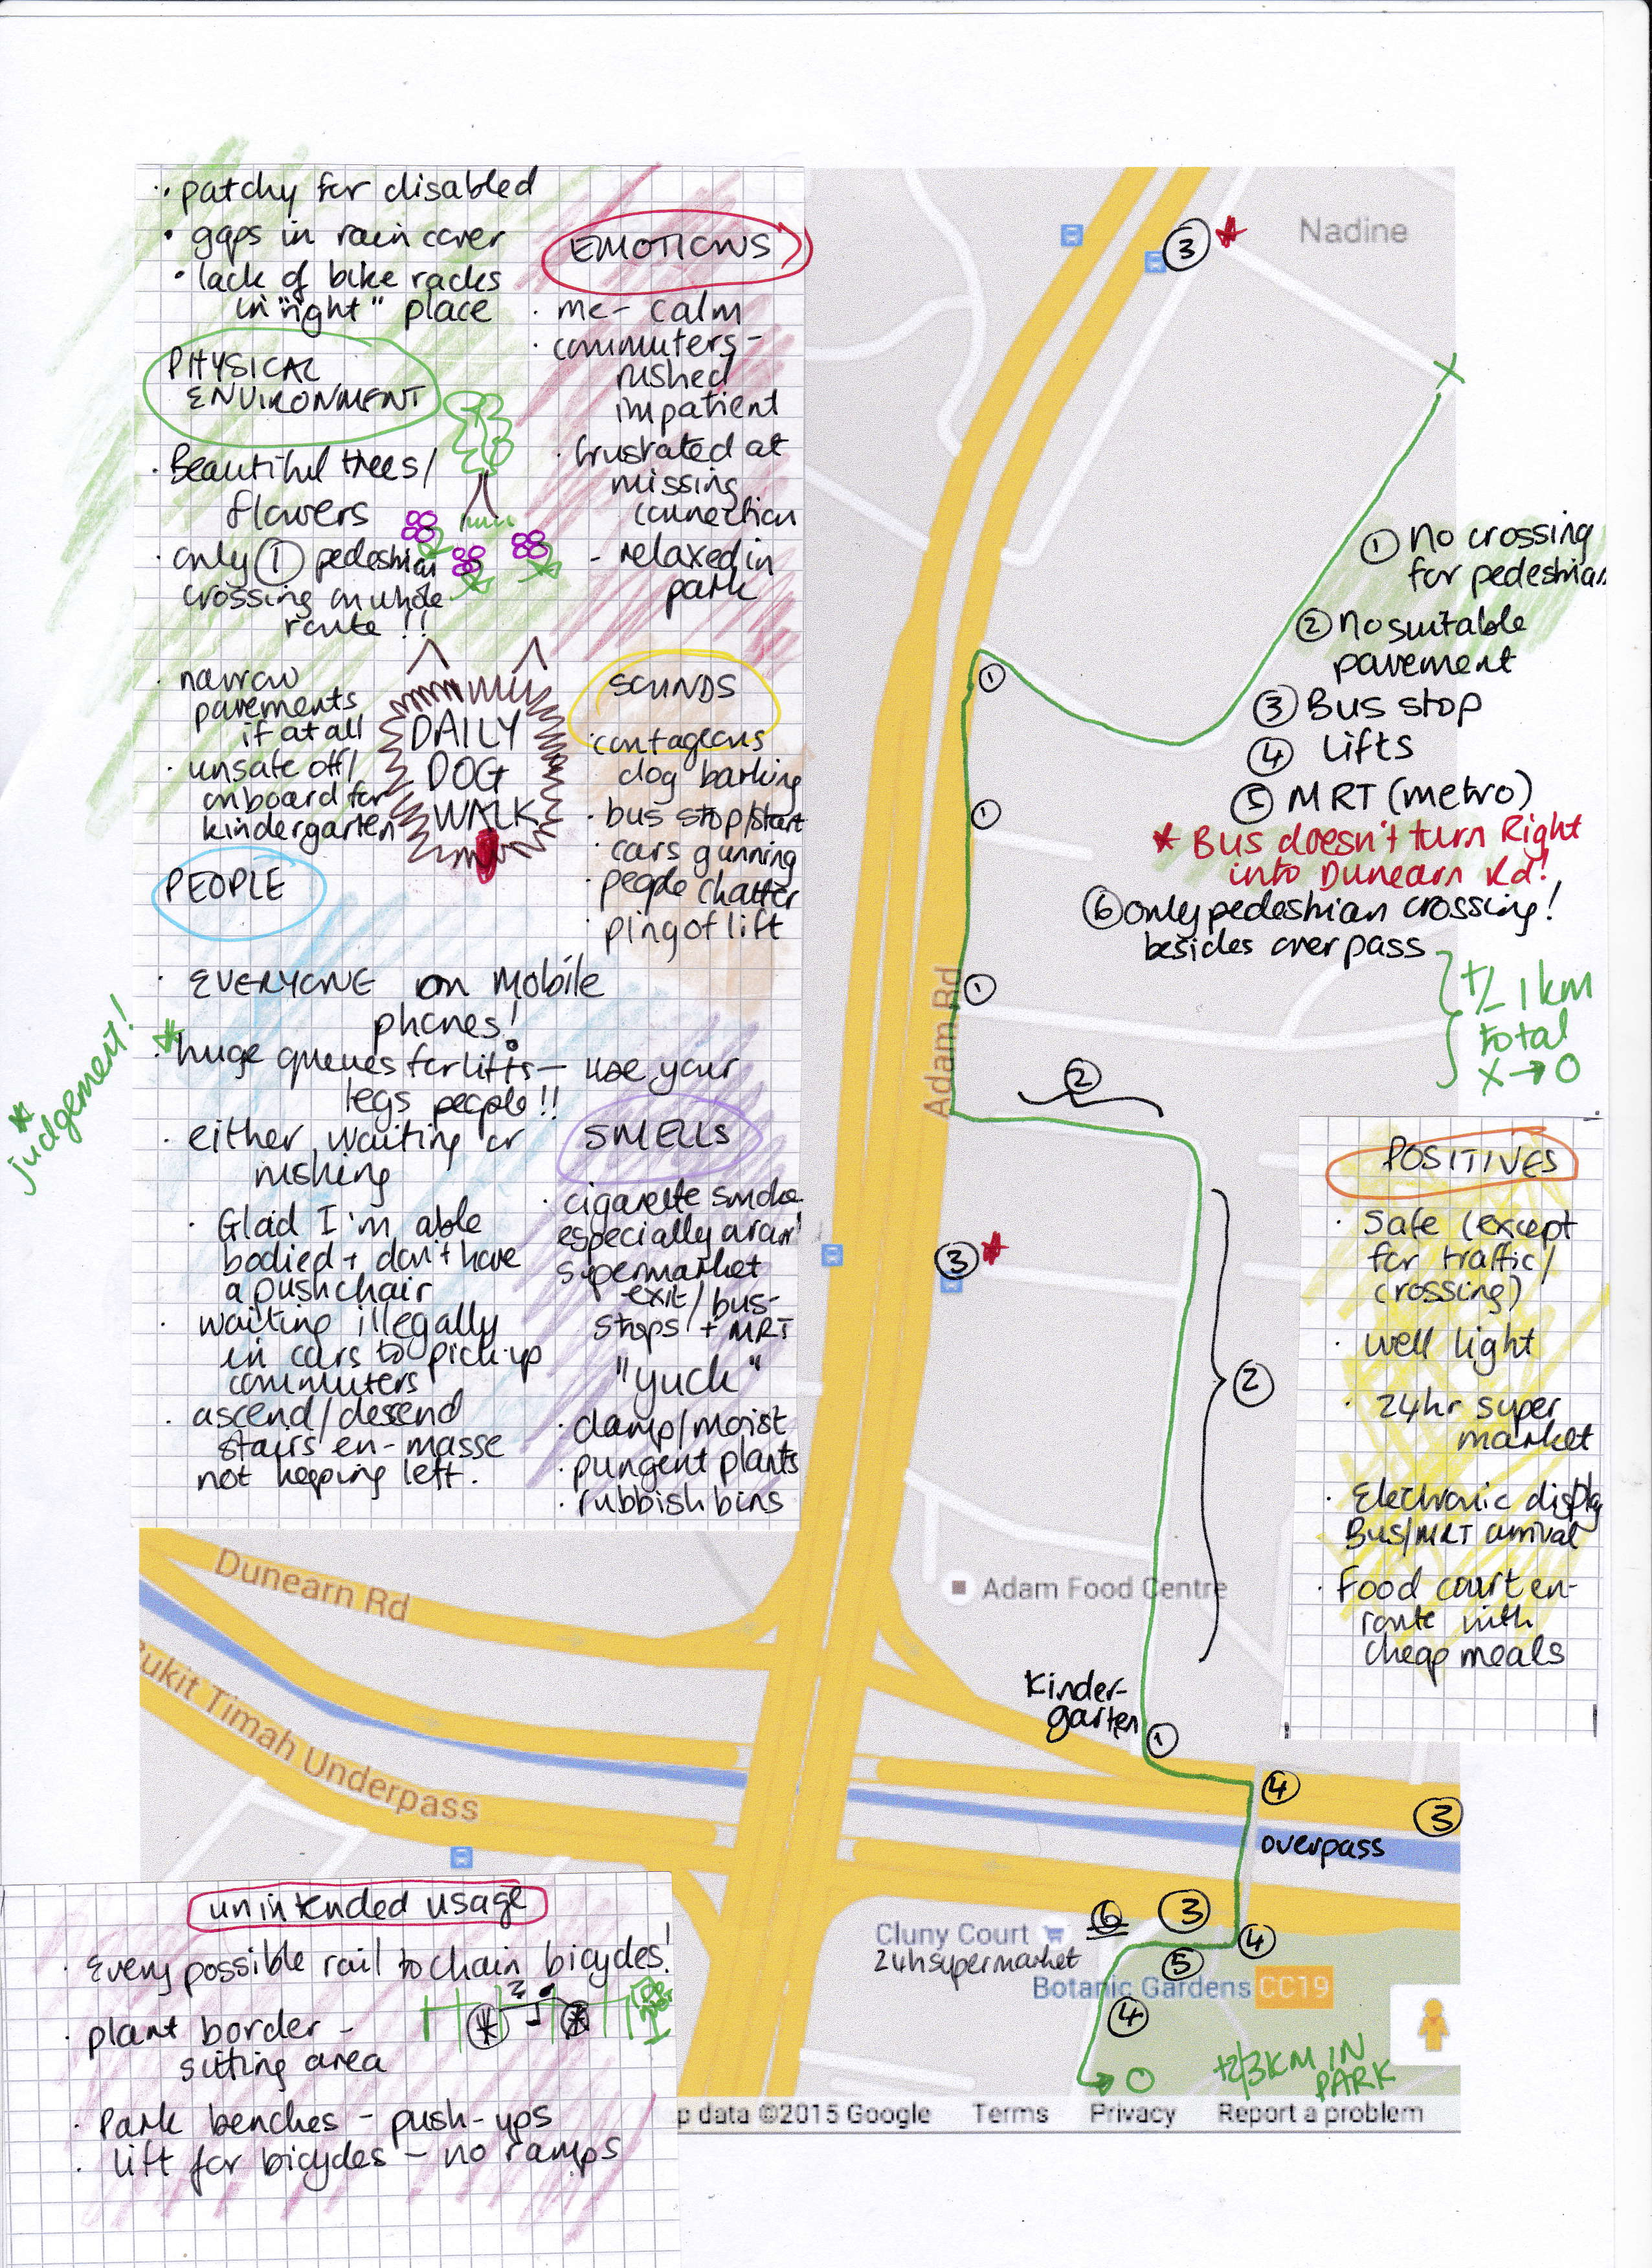 · patchy for disabled
· gaps in rain cover
· lack of bike racks
in "right" place
PHYSICAL
ENVIRONMENT
· Beautiful trees/
flowers
· only ① pedestrian
crossing on whole
route !!
· narrow
pavements
if at all
· unsafe off/
onboard for
kindergarten
DAILY
DOG
WALK
EMOTIONS
· me - calm
· commuters -
rushed
impatient
· frustrated at
missing
connection
- relaxed in
park
SOUNDS
· contageous
dog barking
· bus stop/start
· cars gunning
· people chatter
· ping of lift
PEOPLE
· EVERYONE on Mobile
phones!
* · huge queues for lifts – use your
legs people!!
* judgement!
· either waiting or
rushing
· Glad I'm able
bodied + don't have
a pushchair
· waiting illegally
in cars to pick-up
commuters
· ascend/descend
stairs en-masse
not keeping left.
SMELLS
· cigarette smoke
especially
supermarket
exit/bus-
stops + MRT
"yuck"
· damp/moist
· pungent plants
· rubbish bins
Nadine
③ *
X
① No crossing
for pedestrian
② No suitable
pavement
③ Bus stop
④ Lifts
⑤ MRT (metro)
* Bus doesn't turn Right
into Dunearn Rd!
⑥ only pedestrian crossing!
besides overpass
+/- 1 km
total
X → O
①
①
①
Adam Rd
②
③ *
②
POSITIVES
· Safe (except
for traffic/
crossing)
· well light
· 24hr super
market
· Electronic display
Bus/MRT arrival
· Food court en-
route with
cheap meals
Dunearn Rd
Bukit Timah Underpass
Adam Food Centre
Kinder-
garten
①
④
③
overpass
⑥ ③
④
Cluny Court
24h supermarket
⑤
Botanic Gardens CC19
④
→ O
+2/3KM IN
PARK
p data ©2015 Google Terms Privacy Report a problem
unintended usage
· Every possible rail to chain bicycles!
· plant border -
sitting area
· Park benches - push-ups
· Lift for bicycles - no ramps